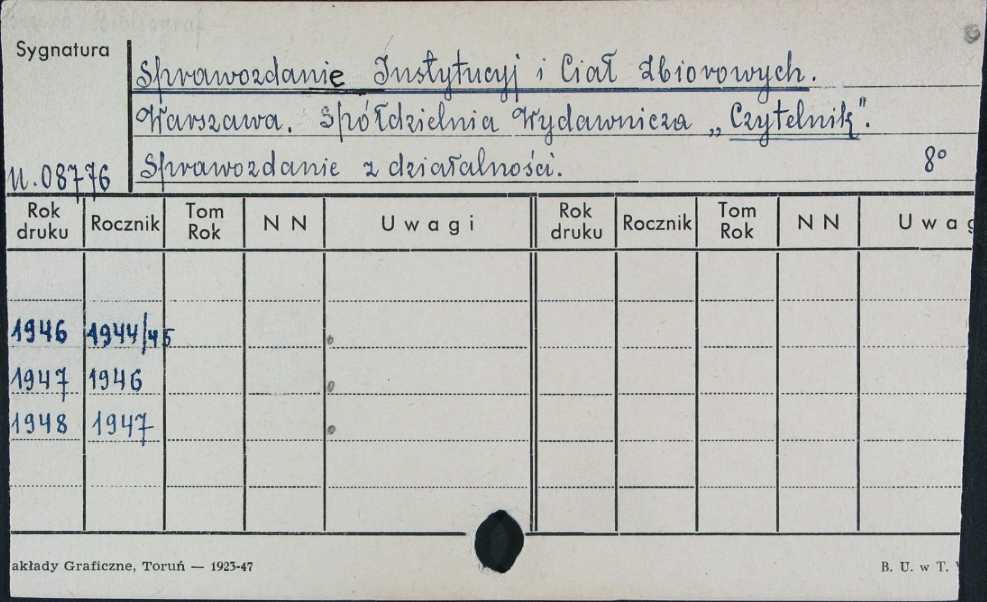 Sygnatura
Sprawozdanie Instytucyj i Ciał Zbiorowych.
Warszawa. Spółdzielnia Wydawnicza „Czytelnik".
Sprawozdanie z działalności. 8°
M.08776
Rok druku Rocznik Tom Rok N N Uwagi Rok druku Rocznik Tom Rok N N Uwag
1946 1944/45
1947 1946
1948 1947
akłady Graficzne, Toruń — 1923-47 B. U. w T.